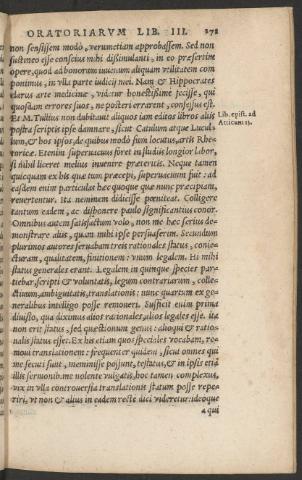 ORATORIARVM LIB. III.   272
non sensissem modò, verumetiam approbassem. Sed non
sustineo esse conscius mihi dissimulanti, in eo præsertim
opere, quod ad bonorum iuuenum aliquam vtilitatem com
ponimus, in vlla parte iudicij mei. Nam & Hippocrates
clarus arte medicinæ, videtur honestissimè fecisse, qui
quosdam errores suos, ne posteri errarent, confessus est.
Et M. Tullius non dubitauit aliquos iam editos libros aliis
Lib. epist. ad
Atticum 13.
postea scriptis ipse damnare, sicut Catulum atque Lucul-
lum, & hos ipsos, de quibus modò sum locutus, artis Rhe-
toricæ. Etenim superuacuus foret in studiis longior labor,
si nihil liceret melius inuenire præteritis. Neque tamen
quicquam ex his quæ tum præcepi, superuacuum fuit: ad
easdem enim particulas hæc quoque quæ nunc præcipiam,
reuertentur. Ita neminem didicisse pœniteat. Colligere
tantum eadem, ac disponere paulò significantius conor.
Omnibus autem satisfactum volo, non me hæc seriùs de-
monstrare aliis, quàm mihi ipse persuaserim. Secundùm
plurimos autores seruabam treis rationales status, coniec-
turam, qualitatem, finitionem: vnum legalem. Hi mihi
status generales erant. Legalem in quinque species par-
tiebar: scripti & voluntatis, legum contrariarum, colle-
ctiuum, ambiguitatis, translationis: nunc quartum ex ge-
neralibus intelligo posse remoueri. Sufficit enim prima
diuisio, qua diximus alios rationales, alios legales esse. ita
non erit status, sed quæstionum genus: alioqui & ratio-
nalis status esset. Ex his etiam quos speciales vocabam, re-
moui translationem: frequenter quidem, sicut omnes qui
me secuti sunt, meminisse possunt, testatus, & in ipsis etiã
illis sermonibus me nolente vulgatis, hoc tamen complexus,
vix in vlla controuersia translationis statum posse repe-
riri, vt non & alius in eadem rectè dici videretur: ideoque
a qui